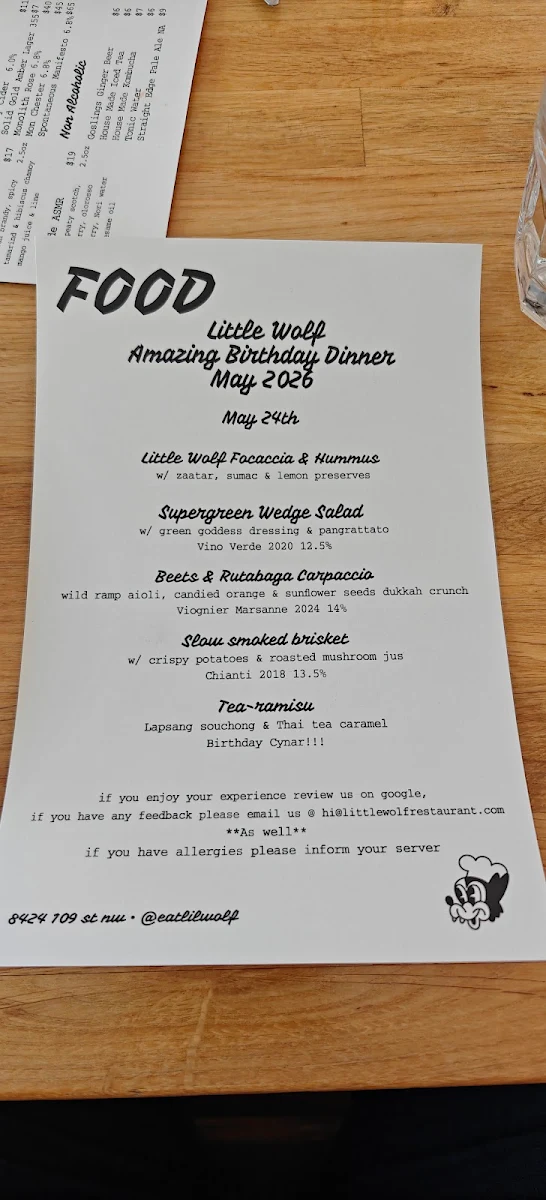 Cider 6.0% $11
Solid Gold Amber Lager 355 $7
Monolith Rose 6.8% $40
Mon Chester 6.8% $45
Spontaneous Manifesto 6.8% $65
Non Alcoholic
Goslings Ginger Beer $6
House Made Iced Tea $6
House Made Kombucha $7
Tonic Water $6
Straight Edge Pale Ale NA $9
$17 2.5oz
brandy, spicy
tamarind & hibiscus chamoy
mango juice & lime
ASMR $19 2.5oz
peaty scotch,
oloroso
Nori water
oil
FOOD
Little Wolf
Amazing Birthday Dinner
May 2026
May 24th
Little Wolf Focaccia & Hummus
w/ zaatar, sumac & lemon preserves
Supergreen Wedge Salad
w/ green goddess dressing & pangrattato
Vino Verde 2020 12.5%
Beets & Rutabaga Carpaccio
wild ramp aioli, candied orange & sunflower seeds dukkah crunch
Viognier Marsanne 2024 14%
Slow smoked brisket
w/ crispy potatoes & roasted mushroom jus
Chianti 2018 13.5%
Tea-ramisu
Lapsang souchong & Thai tea caramel
Birthday Cynar!!!
if you enjoy your experience review us on google,
if you have any feedback please email us @ hi@littlewolfrestaurant.com
**As well**
if you have allergies please inform your server
8424 109 st nw • @eatlilwolf